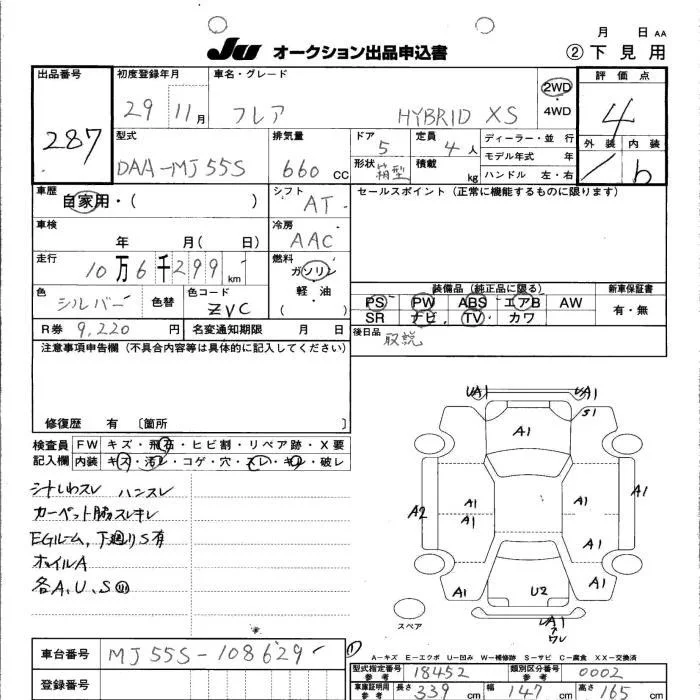 月 日 AA
JU オークション出品申込書 ②下見用
出品番号 初度登録年月 車名・グレード 評価点
287 29 11月 フレア HYBRID XS 2WD 4WD 4
型式 排気量 ドア 定員 ディーラー・並行 外装 内装
DAA-MJ55S 660 CC 5 4人 モデル年式 年 b
形状 箱型 積載 kg ハンドル 左・右
車歴 自家用・( ) シフト AT セールスポイント (正常に機能するものに限ります)
車検 年 月( 日) 冷房 AAC
走行 10万6千299km 燃料 ガソリン 軽・油 ( )
装備品 (純正品に限る) 新車保証書
色 シルバー 色替 色コード ZVC
PS PW ABS エアB AW 有・無
SR ナビ TV カワ
R券 9,220円 名変通知期限 月 日 後日品 取説
注意事項申告欄 (不具合内容等は具体的に記入してください)
修復歴 有 〔箇所 〕
検査員 FW キズ・飛石・ヒビ割・リペア跡・X要
記入欄 内装 キズ・汚レ・コゲ・穴・スレ・キレ・破レ
シートしわスレ ハンスレ
カーペット脇スレキレ
EGルーム、下廻りS有
ホイルA
各A、U、S
UA1 UA1
S1
A1
A1 A1 A1
A2 A1
A1
A1 U2 A1
UA1
ワレ
スペア
A-キズ E-エクボ U-凹み W-補修跡 S-サビ C-腐食 XX-交換済
車台番号 MJ55S-108629
型式指定番号 参考 18452 類別区分番号 参考 0002
登録番号 車庫証明用 参考 長さ 339 cm 幅 147 cm 高さ 165 cm